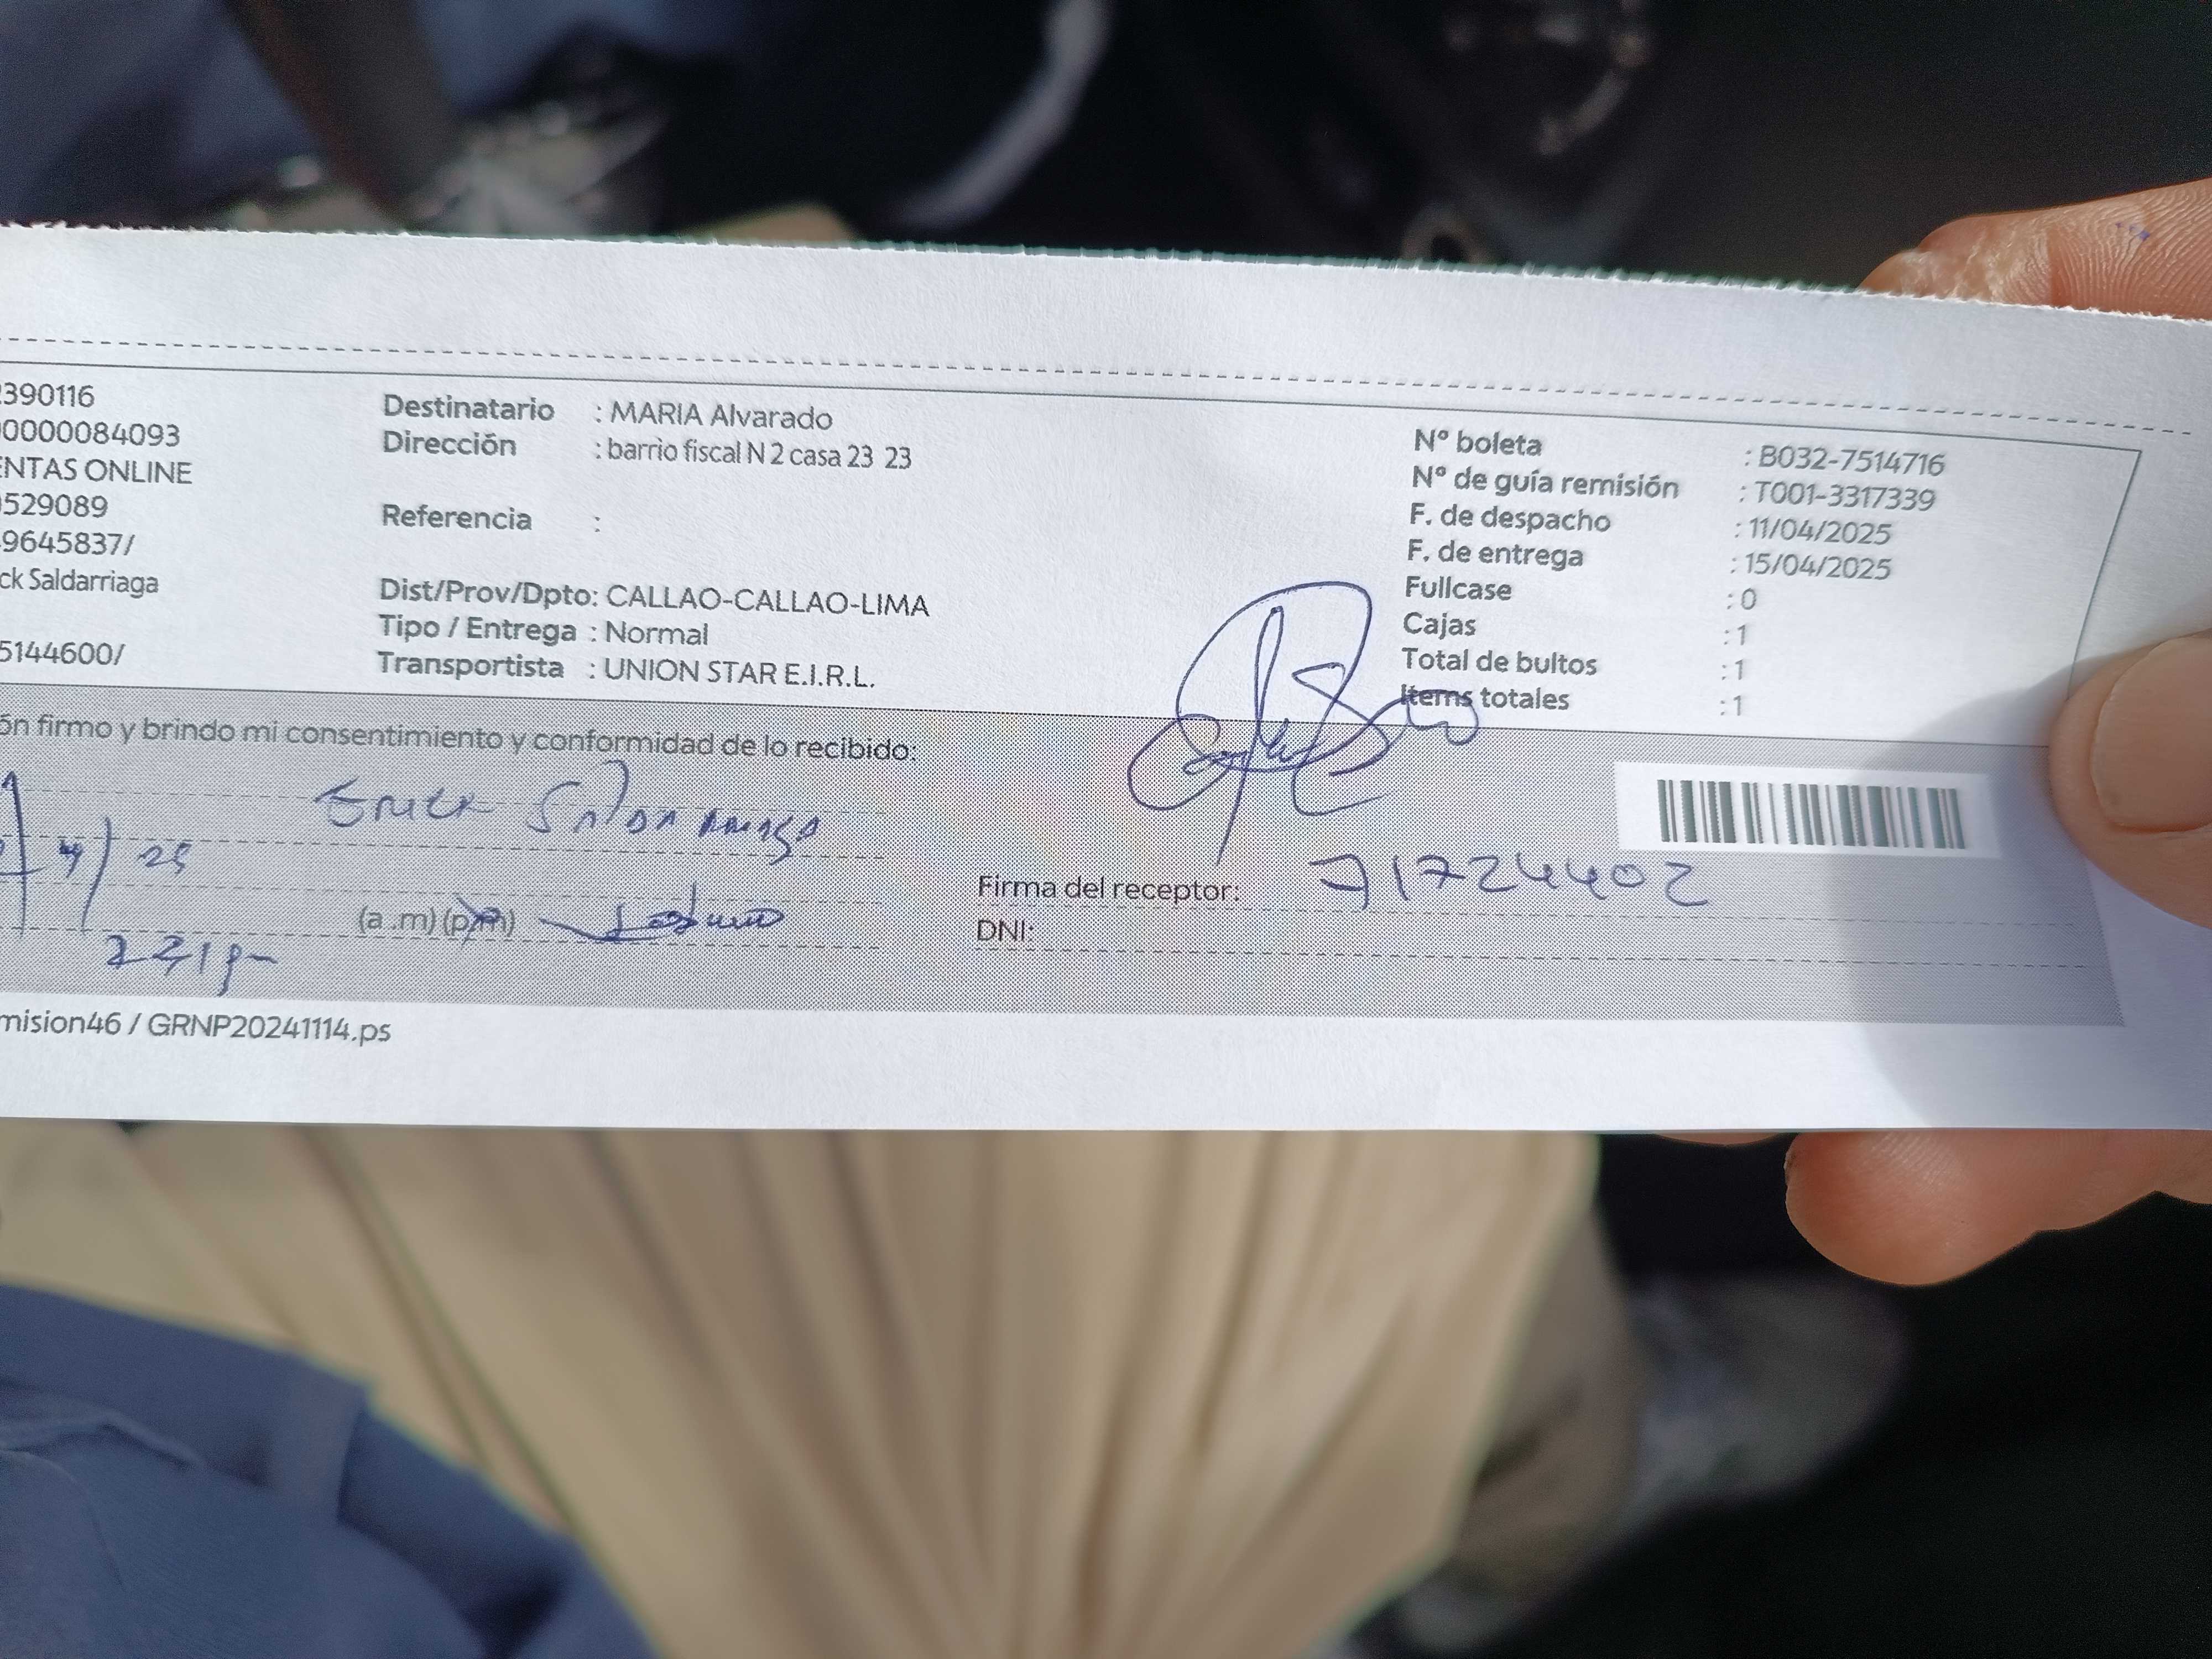 2390116
0000084093
ENTAS ONLINE
529089
9645837/
ck Saldarriaga
5144600/
Destinatario : MARIA Alvarado
Dirección : barrio fiscal N 2 casa 23 23
Referencia :
Dist/Prov/Dpto: CALLAO-CALLAO-LIMA
Tipo / Entrega : Normal
Transportista : UNION STAR E.I.R.L.
N° boleta : B032-7514716
N° de guía remisión : T001-3317339
F. de despacho : 11/04/2025
F. de entrega : 15/04/2025
Fullcase : 0
Cajas : 1
Total de bultos : 1
Items totales : 1
ón firmo y brindo mi consentimiento y conformidad de lo recibido:
Erick Saldarriaga
4/25
(a .m) (p.m)
Firma del receptor: 71724402
DNI:
mision46 / GRNP20241114.ps